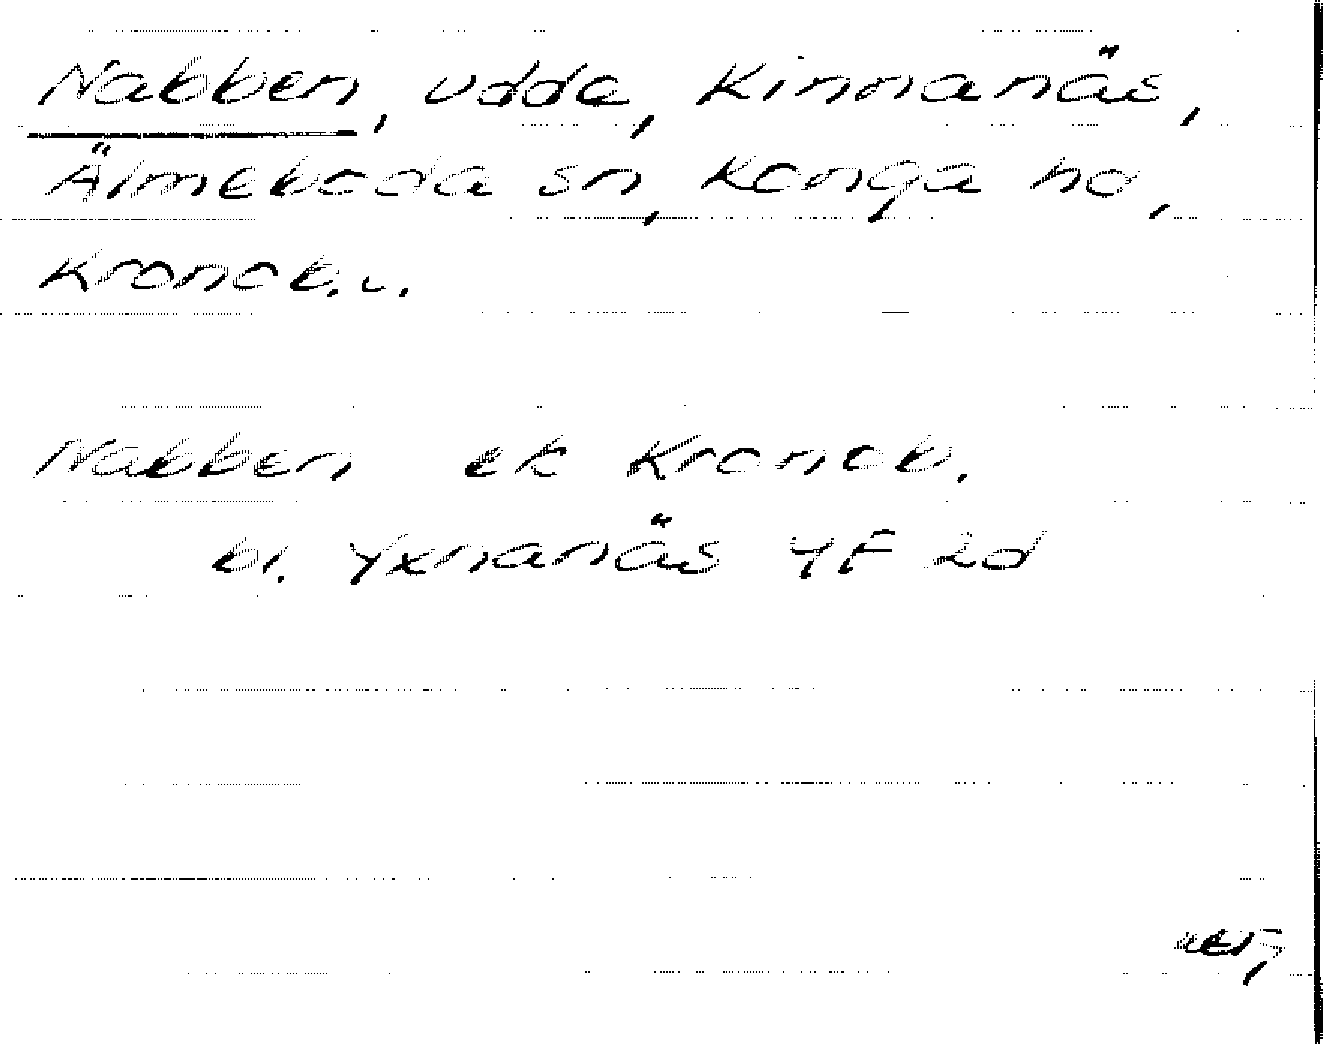 Nabben, udde, Kinnanäs,
Älmeboda sn, Konga hd,
Kronob. l.
Nabben ek Kronob.
bl. Yxnanäs 4F 2d